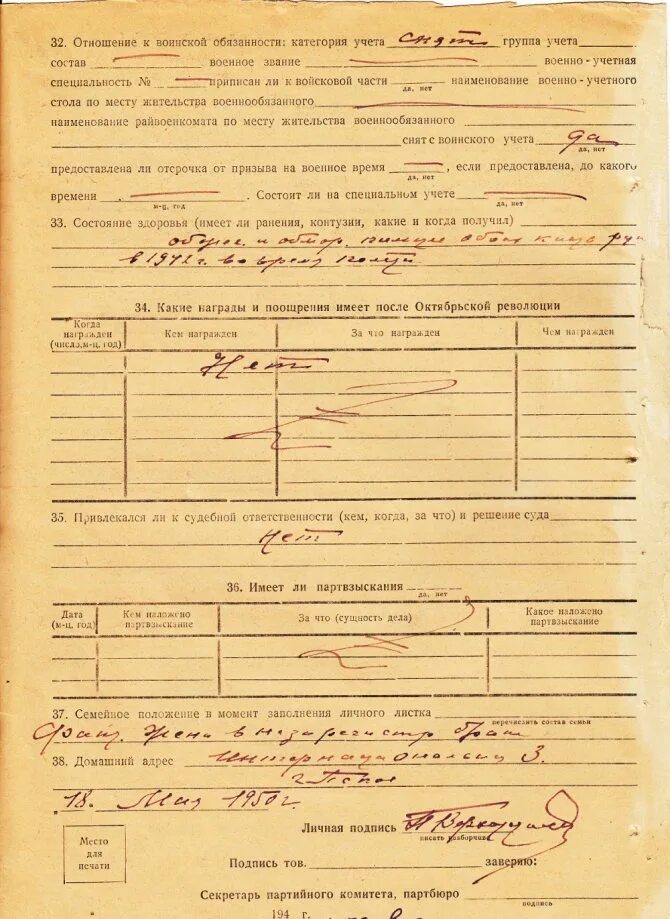 32. Отношение к воинской обязанности: категория учета снят группа учета
состав военное звание военно-учетная
специальность № приписан ли к войсковой части наименование военно-учетного
да, нет
стола по месту жительства военнообязанного
наименование райвоенкомата по месту жительства военнообязанного
снят с воинского учета да
да, нет
предоставлена ли отсрочка от призыва на военное время , если предоставлена, до какого
да, нет
времени . Состоит ли на специальном учете
м-ц, год да, нет
33. Состояние здоровья (имеет ли ранения, контузии, какие и когда получил)
обеих
в 1942 г. во время
34. Какие награды и поощрения имеет после Октябрьской революции
Когда награжден (число, м-ц, год) Кем награжден За что награжден Чем награжден
Нет
35. Привлекался ли к судебной ответственности (кем, когда, за что) и решение суда
нет
36. Имеет ли партвзыскания
да, нет
Дата (м-ц, год) Кем наложено партвзыскание За что (сущность дела) Какое наложено партвзыскание
37. Семейное положение в момент заполнения личного листка
перечислить состав семьи
жена в незарегистр.
38. Домашний адрес Интернациональная 3.
г. Псков
18. Мая 1950 г.
Личная подпись
писать разборчиво
Место
для
печати
Подпись тов. заверяю:
Секретарь партийного комитета, партбюро
подпись
194 г.